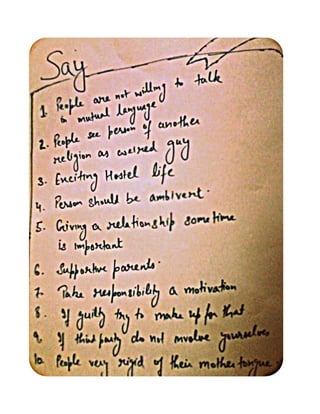 Say
1. People are not willing to talk
in mutual language
2. People see person of another
religion as weired guy
3. Exciting Hostel life
4. Person should be ambivert.
5. Giving a relationship sometime
is important
6. Supportive parents.
7. Take responsibility a motivation
8. If guilty try to make up for that
9. If third party do not nvolve yourselves
10. People very rigid of their mother tongue.